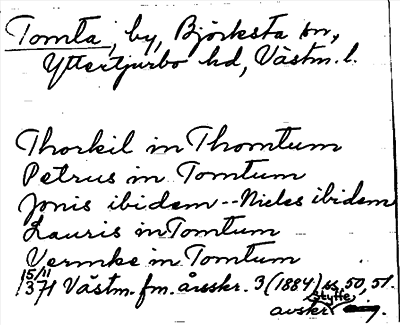 Tomta, by, Björksta sn,
Yttertjurbo hd, Västm. l.
Thorkil in Thomtum
Petrus in Tomtum
Jonis ibidem -- Nicles ibidem
Lauris in Tomtum
Vermke in Tomtum
15/11 1371 Västm. fm. årsskr. 3 (1884) ss. 50, 51.
Styffe
avskr.